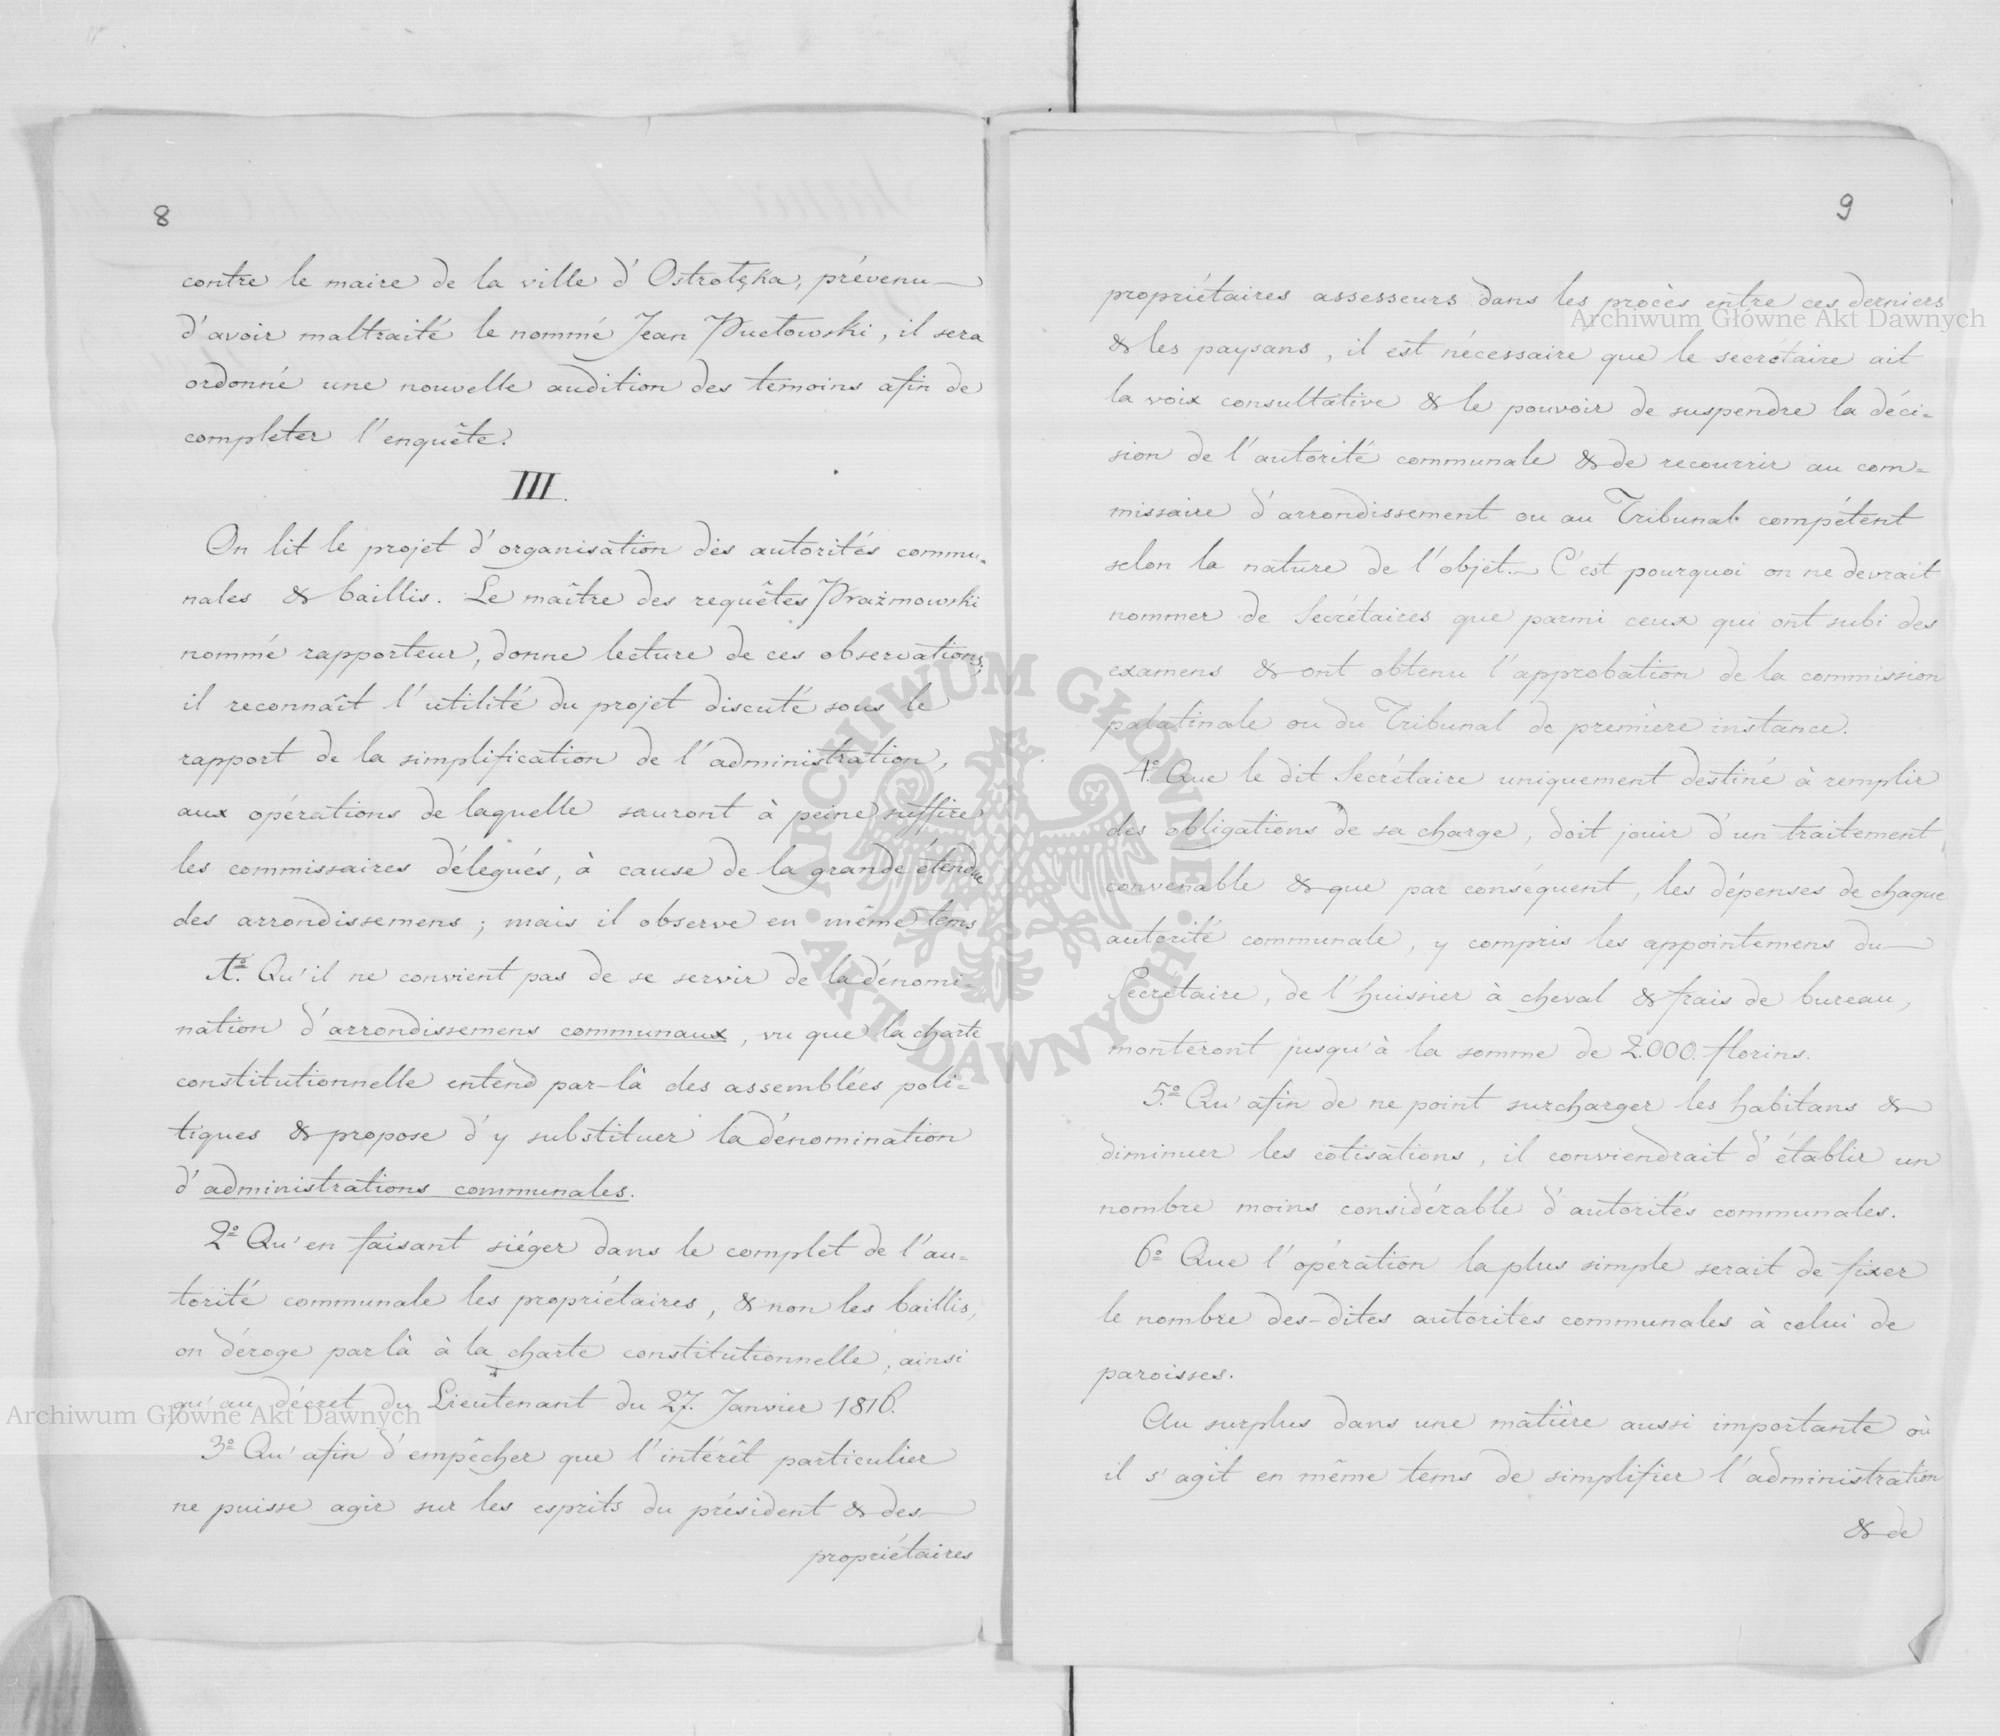 8
contre le maire de la ville d'Ostrołęka, prévenu
d'avoir maltraité le nommé Jean Puctowski, il sera
ordonné une nouvelle audition des temoins afin de
completer l'enquête.
III.
On lit le projet d'organisation des autorités commu-
nales & baillis. Le maître des requêtes Prażmowski
nommé rapporteur, donne lecture de ces observations,
il reconnaît l'utilité du projet discuté sous le
rapport de la simplification de l'administration,
aux opérations de laquelle sauront à peine suffire
les commissaires délegués, à cause de la grande étendue
des arrondissemens; mais il observe en même tems
1º Qu'il ne convient pas de se servir de la dénomi-
nation d'arrondissemens communaux, vu que la charte
constitutionnelle entend par-là des assemblées poli-
tiques & propose d'y substituer la dénomination
d'administrations communales.
2º Qu'en faisant siéger dans le complet de l'au-
torité communale les propriétaires, & non les baillis,
on déroge par là à la charte constitutionnelle, ainsi
qu'au décret du Lieutenant du 27. Janvier 1816.
3º Qu'afin d'empêcher que l'intérêt particulier
ne puisse agir sur les esprits du président & des
propriétaires
9
propriétaires assesseurs dans les procès entre ces derniers
& les paysans, il est nécessaire que le secrétaire ait
la voix consultative & le pouvoir de suspendre la déci-
sion de l'autorité communale & de recourrir au com-
missaire d'arrondissement ou au Tribunal compétent
selon la nature de l'objet. C'est pourquoi on ne devrait
nommer de Secrétaires que parmi ceux qui ont subi des
examens & ont obtenu l'approbation de la commission
palatinale ou du Tribunal de première instance.
4º Que le dit Secrétaire uniquement destiné à remplir
des obligations de sa charge, doit jouir d'un traitement
convenable & que par conséquent, les dépenses de chaque
autorité communale, y compris les appointemens du
Secrétaire, de l'huissier à cheval & frais de bureau,
monteront jusqu'à la somme de 2.000. florins.
5º Qu'afin de ne point surcharger les habitans &
diminuer les cotisations, il conviendrait d'établir un
nombre moins considérable d'autorités communales.
6º Que l'opération la plus simple serait de fixer
le nombre des-dites autorités communales à celui de
paroisses.
Au surplus dans une matière aussi importante où
il s'agit en même tems de simplifier l'administration
& de
Archiwum Główne Akt Dawnych
Archiwum Główne Akt Dawnych
ARCHIWUM GŁÓWNE · AKT DAWNYCH ·